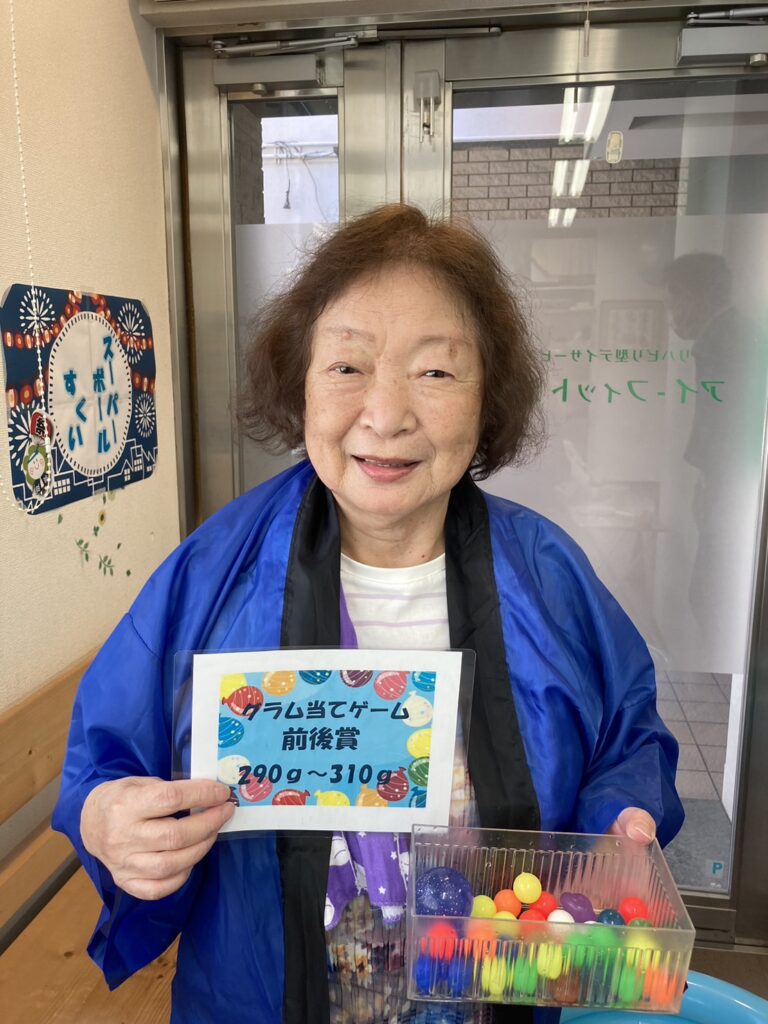 スーパー
ボール
すくい
リハビリ型デイサービ
アイ-フィット
グラム当てゲーム
前後賞
290g～310g
P